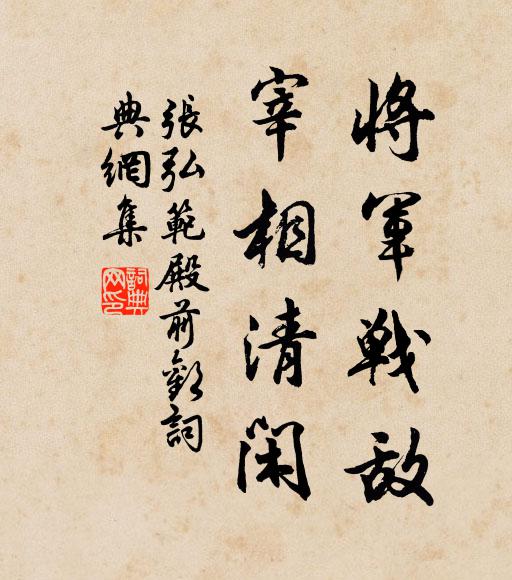 將軍戦敌
宰相清閑
張弘範殿前歡詞
典網集
詞典
网印